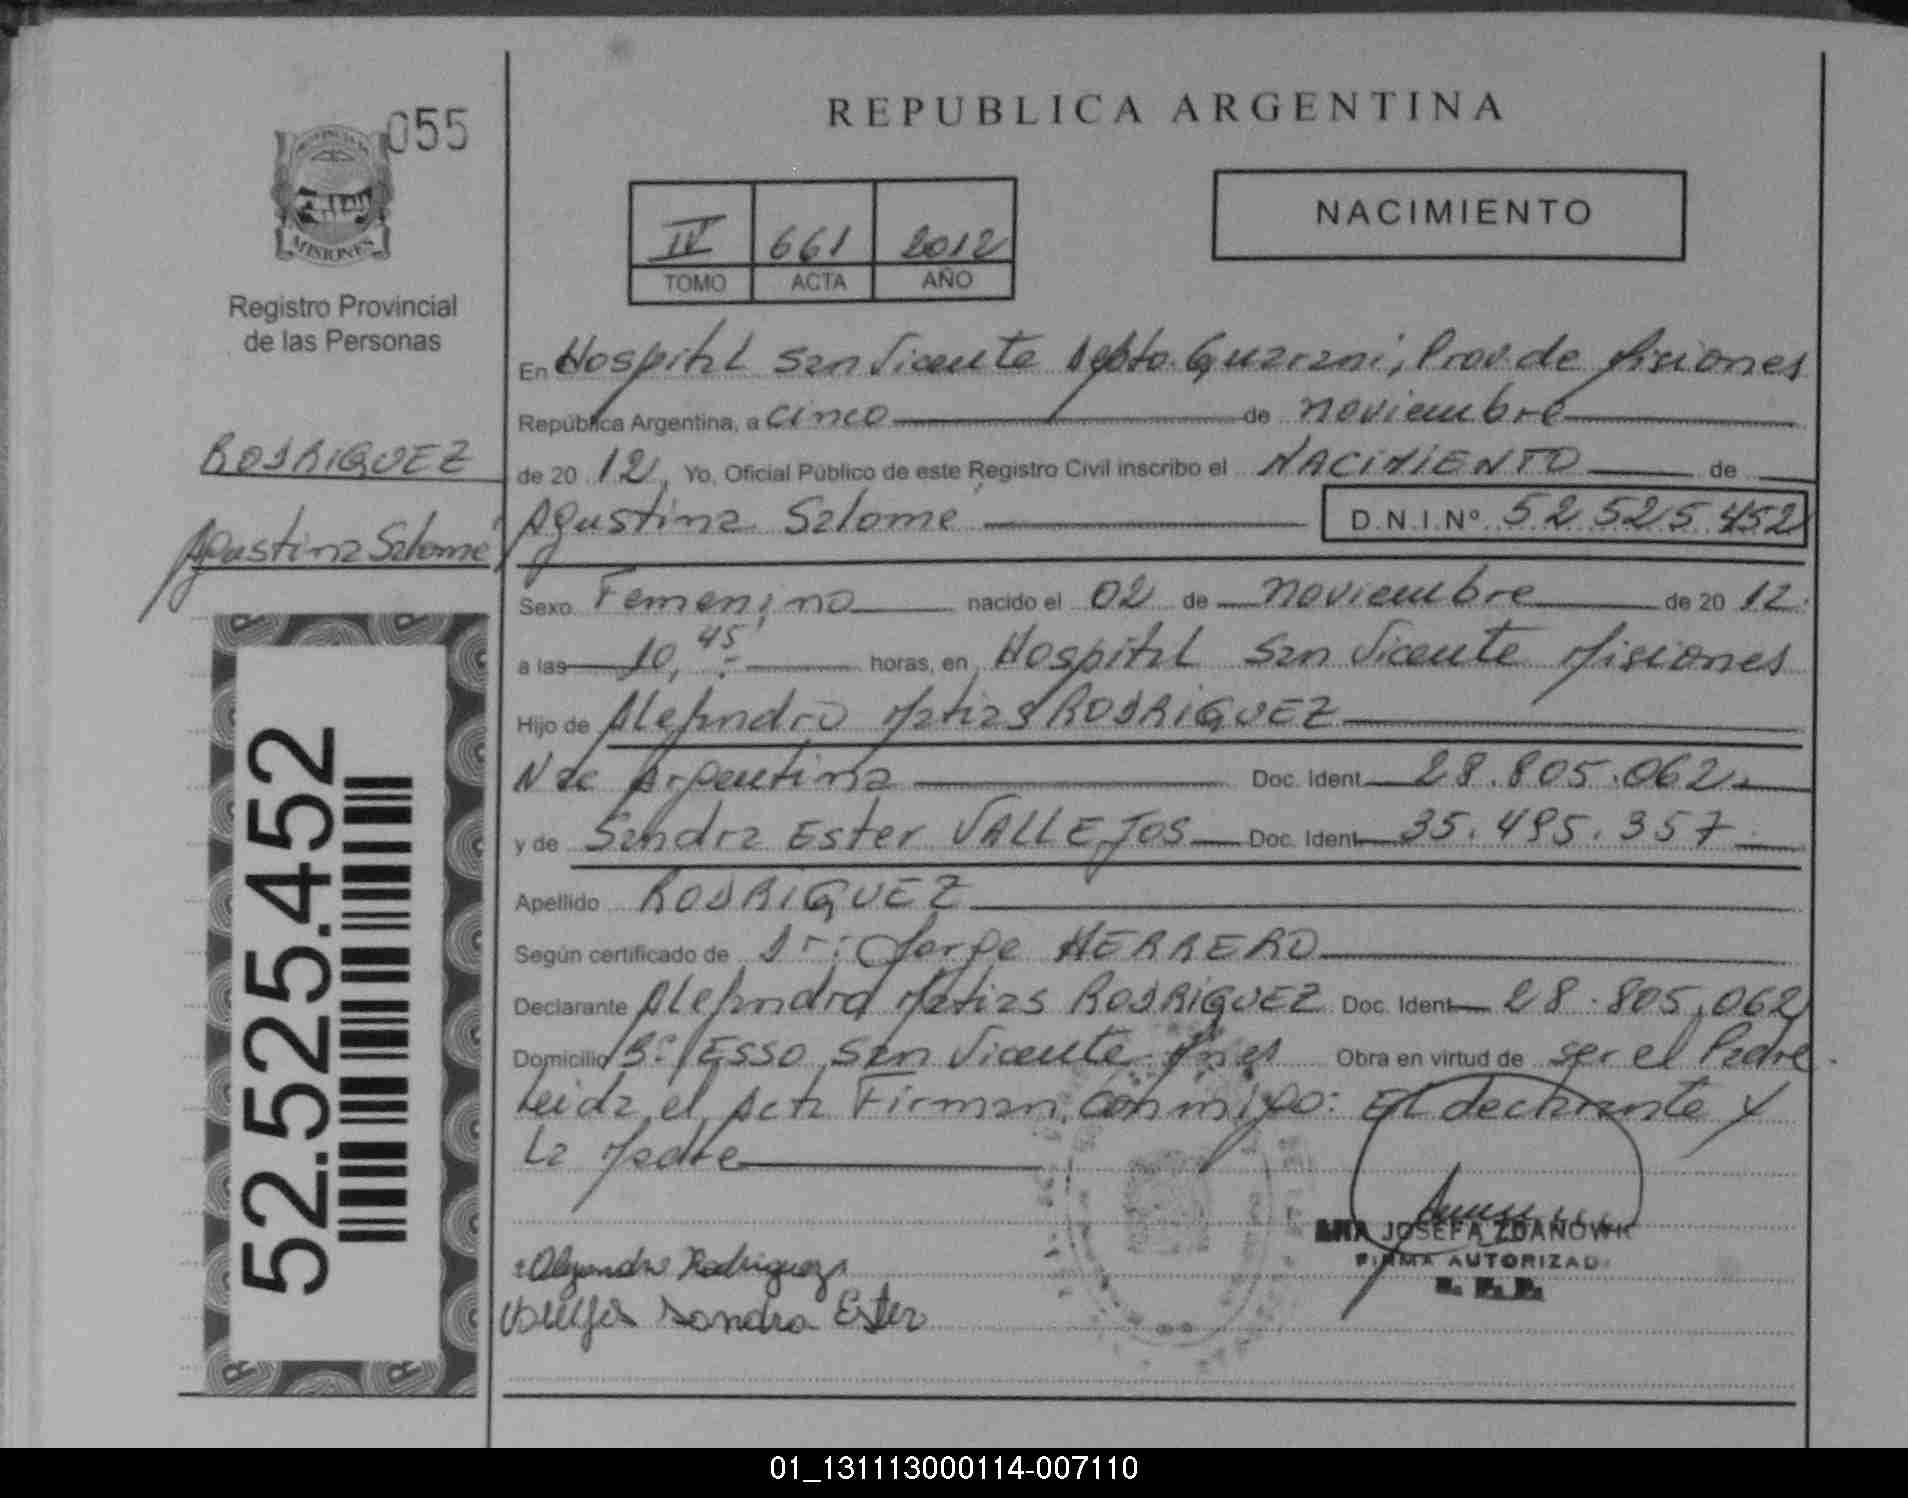 055
MISIONES
Registro Provincial
de las Personas
RODRIGUEZ
Agustina Salomé
52.525.452
REPUBLICA ARGENTINA
IV 661 2012
TOMO ACTA AÑO
NACIMIENTO
En Hospital San Vicente Depto. Guarani, Prov. de Misiones
República Argentina, a cinco de noviembre
de 2012, Yo, Oficial Público de este Registro Civil inscribo el NACIMIENTO de
Agustina Salomé D.N.I.Nº 52 525 452
Sexo Femenino nacido el 02 de noviembre de 2012.
a las 10,45 horas, en Hospital San Vicente Misiones
Hijo de Alejandro Matias RODRIGUEZ
Nac Argentina Doc. Ident 28.805.062
y de Sandra Ester VALLEJOS Doc. Ident 35.495.357
Apellido RODRIGUEZ
Según certificado de Dr: Jorge HERRERO
Declarante Alejandro Matias RODRIGUEZ Doc. Ident 28.805.062
Domicilio Bº ESSO San Vicente Mnes Obra en virtud de ser el Padre.
Leida el Acta Firman conmigo: El declarante y
La Madre
ANA JOSEFA ZDANOWK
FIRMA AUTORIZAD
Alejandro Rodriguez
R. P. P.
Vallejos Sandra Ester
01_131113000114-007110